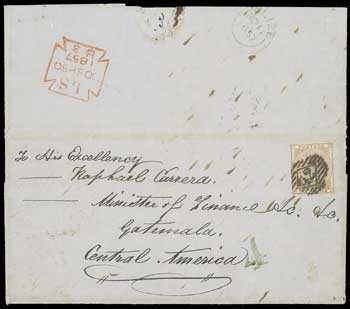 To His Excellency
Raphael Carrera.
Minister of Finance &c. &c.
Gatemala.
Central America
LS
1857
POSTAGE